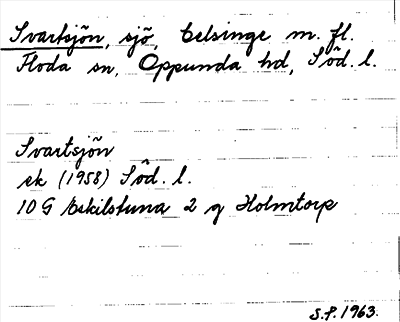 Svartsjön, sjö, Celsinge m. fl.
Floda sn, Oppunda hd, Söd. l.
Svartsjön
ek (1958) Söd. l.
10 G Eskilstuna 2 g Holmtorp
S.P. 1963.